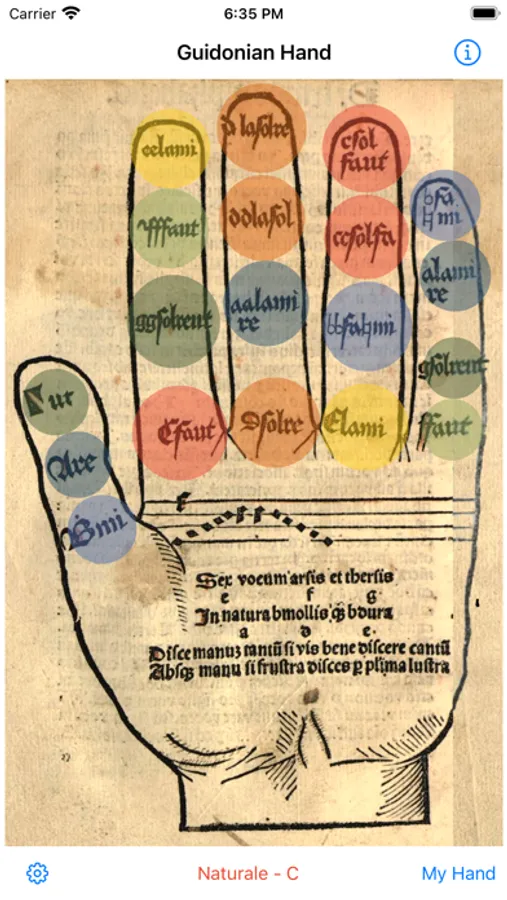 Carrier 6:35 PM
Guidonian Hand
eelami
d lasolre
csol
faut
fffaut
ddlasol
ccsolfa
b fa
♮ mi
ggsolreut
aalami
re
bbfa♮mi
alami
re
gsolreut
Γ ut
Cfaut
Dsolre
Elami
ffaut
Are
Bmi
Sex vocum arsis et thesis
c f g
In natura bmollis q̃ b dura
a d e
Disce manuz tantũ si vis bene discere cantũ
Absq; manu si frustra disces ꝑ plima lustra
Naturale - C
My Hand